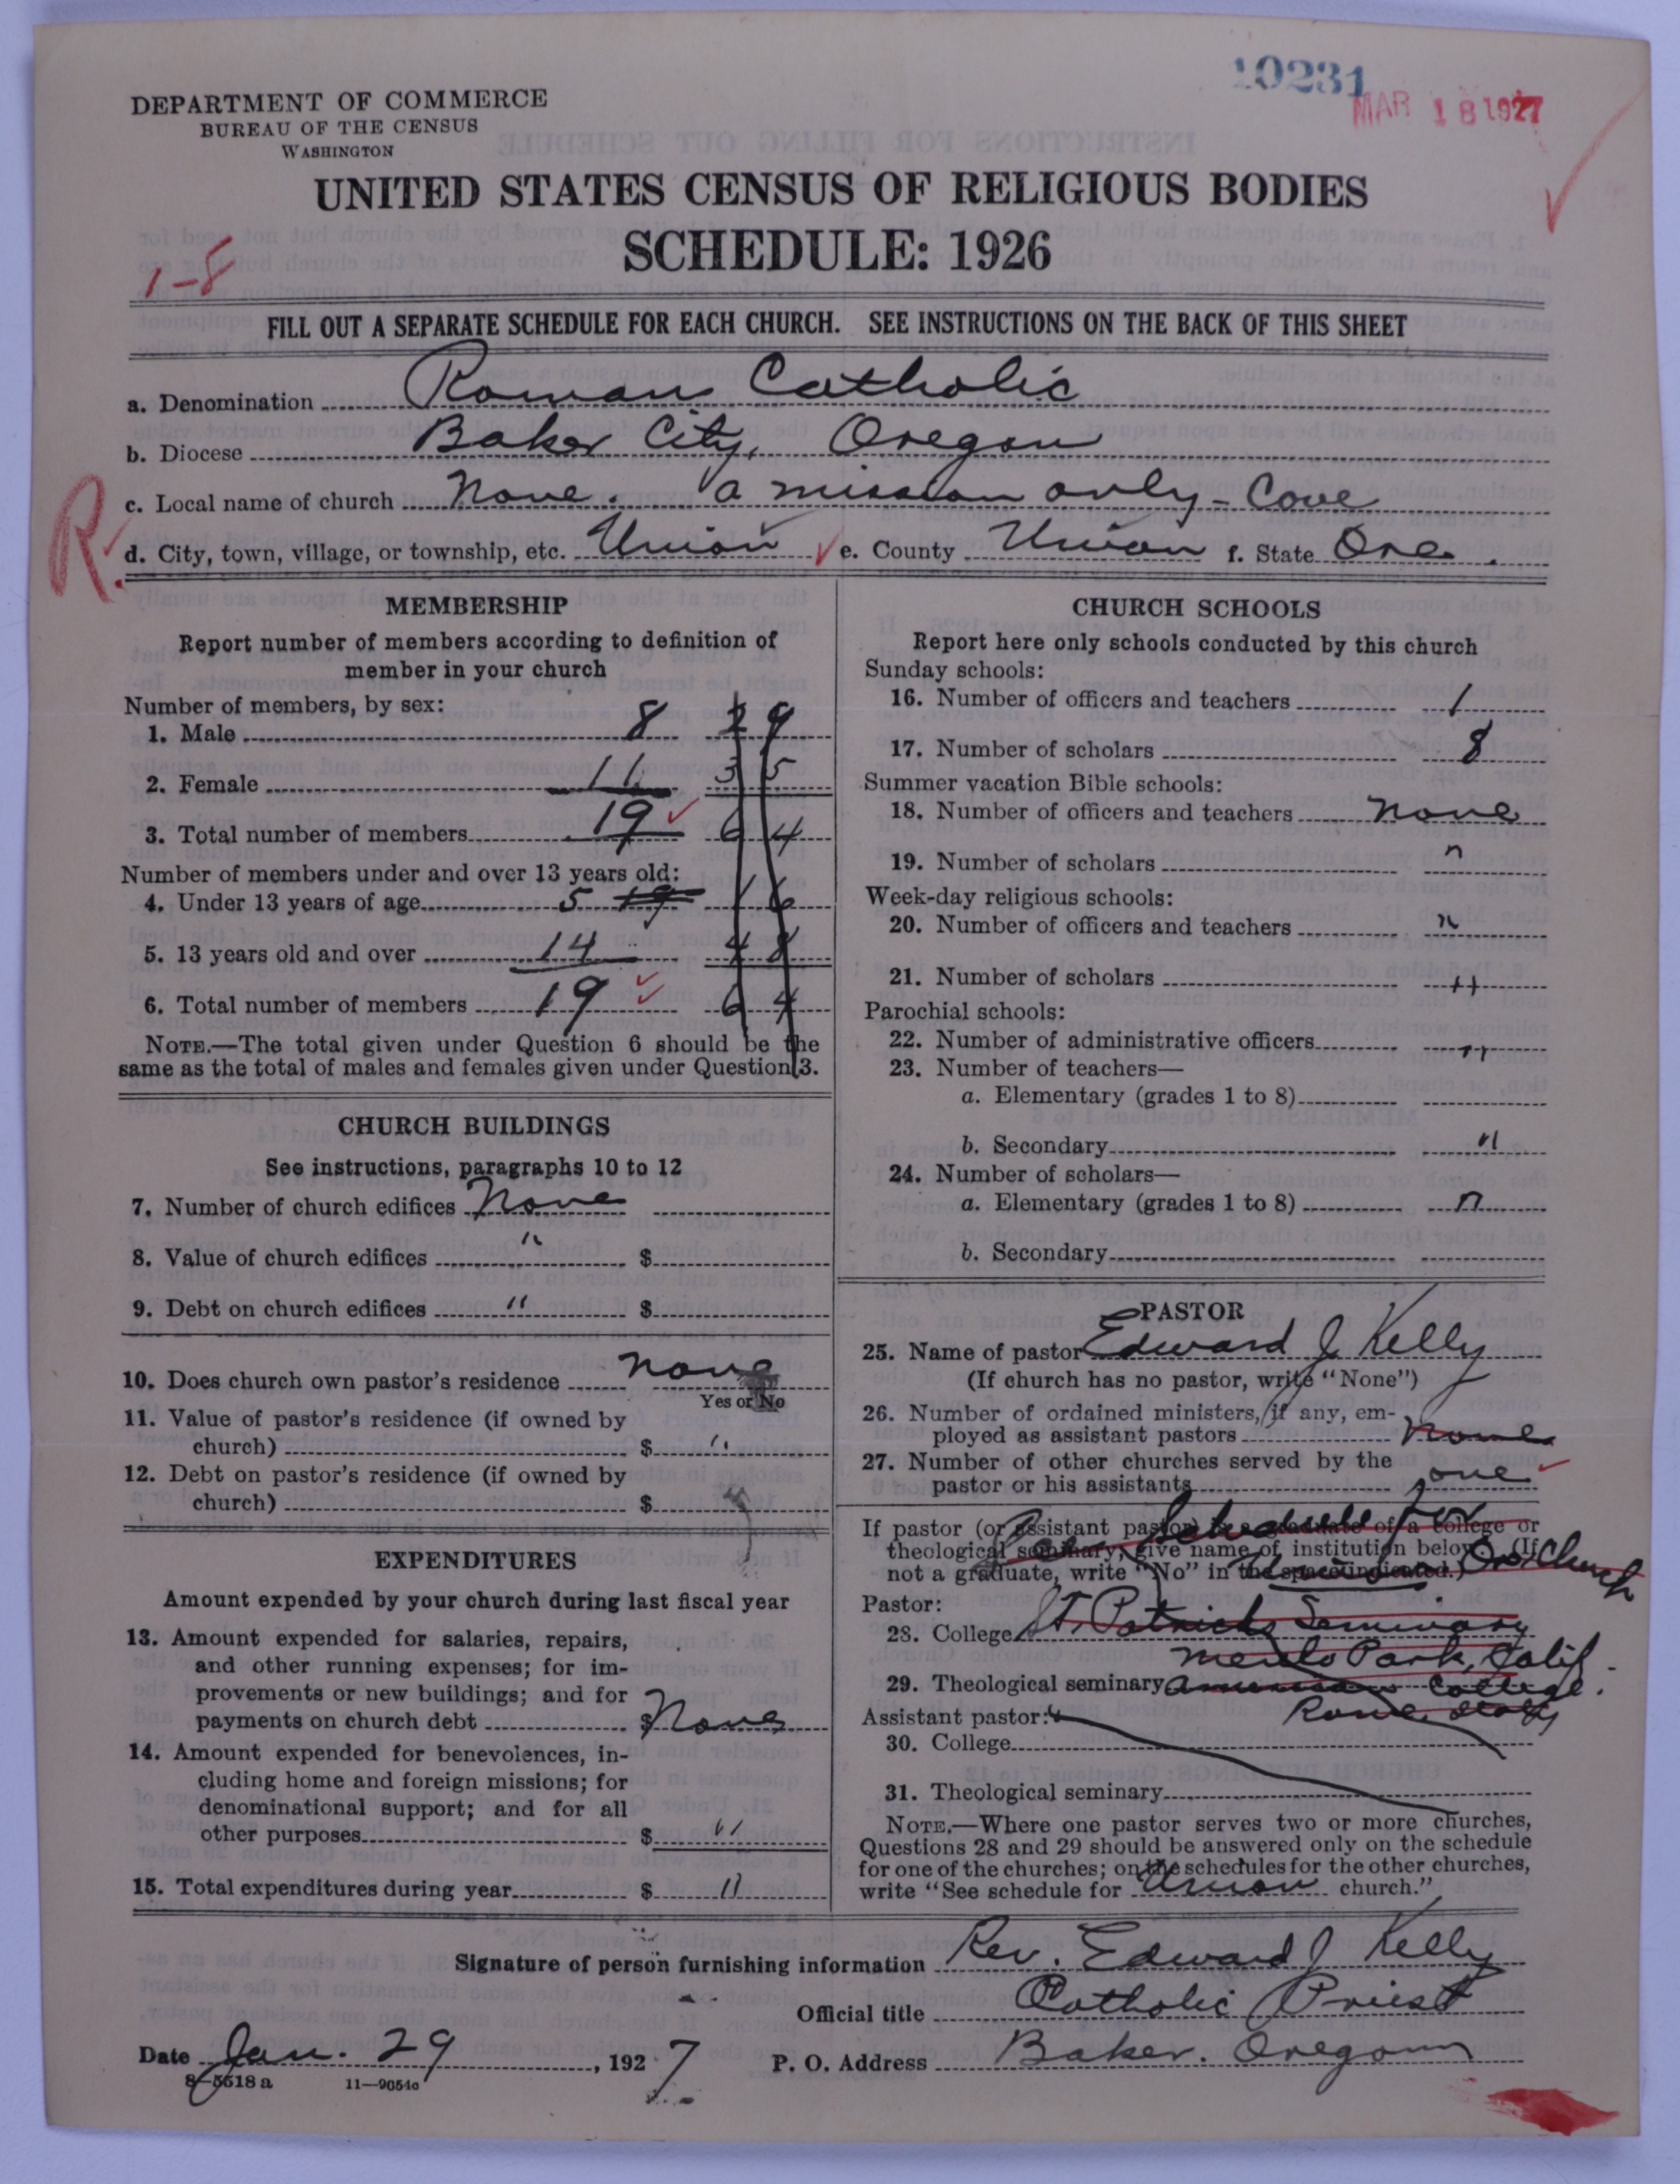 10231
MAR 18 1927
DEPARTMENT OF COMMERCE
BUREAU OF THE CENSUS
WASHINGTON
UNITED STATES CENSUS OF RELIGIOUS BODIES
SCHEDULE: 1926
1-8
FILL OUT A SEPARATE SCHEDULE FOR EACH CHURCH. SEE INSTRUCTIONS ON THE BACK OF THIS SHEET
a. Denomination Roman Catholic
b. Diocese Baker City, Oregon
c. Local name of church None. a mission only - Cove
R.
d. City, town, village, or township, etc. Union e. County Union f. State Ore.
MEMBERSHIP
Report number of members according to definition of
member in your church
Number of members, by sex:
1. Male 8 29
2. Female 11 35
3. Total number of members 19 64
Number of members under and over 13 years old:
4. Under 13 years of age 5 19 16
5. 13 years old and over 14 48
6. Total number of members 19 64
NOTE.—The total given under Question 6 should be the
same as the total of males and females given under Question 3.
CHURCH BUILDINGS
See instructions, paragraphs 10 to 12
7. Number of church edifices None
8. Value of church edifices " $
9. Debt on church edifices " $
10. Does church own pastor's residence none
Yes or No
11. Value of pastor's residence (if owned by
church) $ "
12. Debt on pastor's residence (if owned by
church) $ "
EXPENDITURES
Amount expended by your church during last fiscal year
13. Amount expended for salaries, repairs,
and other running expenses; for im-
provements or new buildings; and for
payments on church debt $ None
14. Amount expended for benevolences, in-
cluding home and foreign missions; for
denominational support; and for all
other purposes $ "
15. Total expenditures during year $ "
CHURCH SCHOOLS
Report here only schools conducted by this church
Sunday schools:
16. Number of officers and teachers 1
17. Number of scholars 8
Summer vacation Bible schools:
18. Number of officers and teachers none
19. Number of scholars "
Week-day religious schools:
20. Number of officers and teachers "
21. Number of scholars "
Parochial schools:
22. Number of administrative officers "
23. Number of teachers—
a. Elementary (grades 1 to 8)
b. Secondary "
24. Number of scholars—
a. Elementary (grades 1 to 8) "
b. Secondary
PASTOR
25. Name of pastor Edward J Kelly
(If church has no pastor, write "None")
26. Number of ordained ministers, if any, em-
ployed as assistant pastors none
27. Number of other churches served by the
pastor or his assistants one
If pastor (or assistant pastor) is a graduate of a college or
theological seminary, give name of institution below. (If
not a graduate, write "No" in the space indicated.)
See Schedule for
Union Ore Church
Pastor:
28. College St. Patricks Seminary
Menlo Park, Calif.
29. Theological seminary American College
Rome Italy
Assistant pastor:
30. College
31. Theological seminary
NOTE.—Where one pastor serves two or more churches,
Questions 28 and 29 should be answered only on the schedule
for one of the churches; on the schedules for the other churches,
write "See schedule for Union church."
Signature of person furnishing information Rev. Edward J Kelly
Official title Catholic Priest
Date Jan. 29, 1927 P. O. Address Baker. Oregon
8-5518a 11-9054c